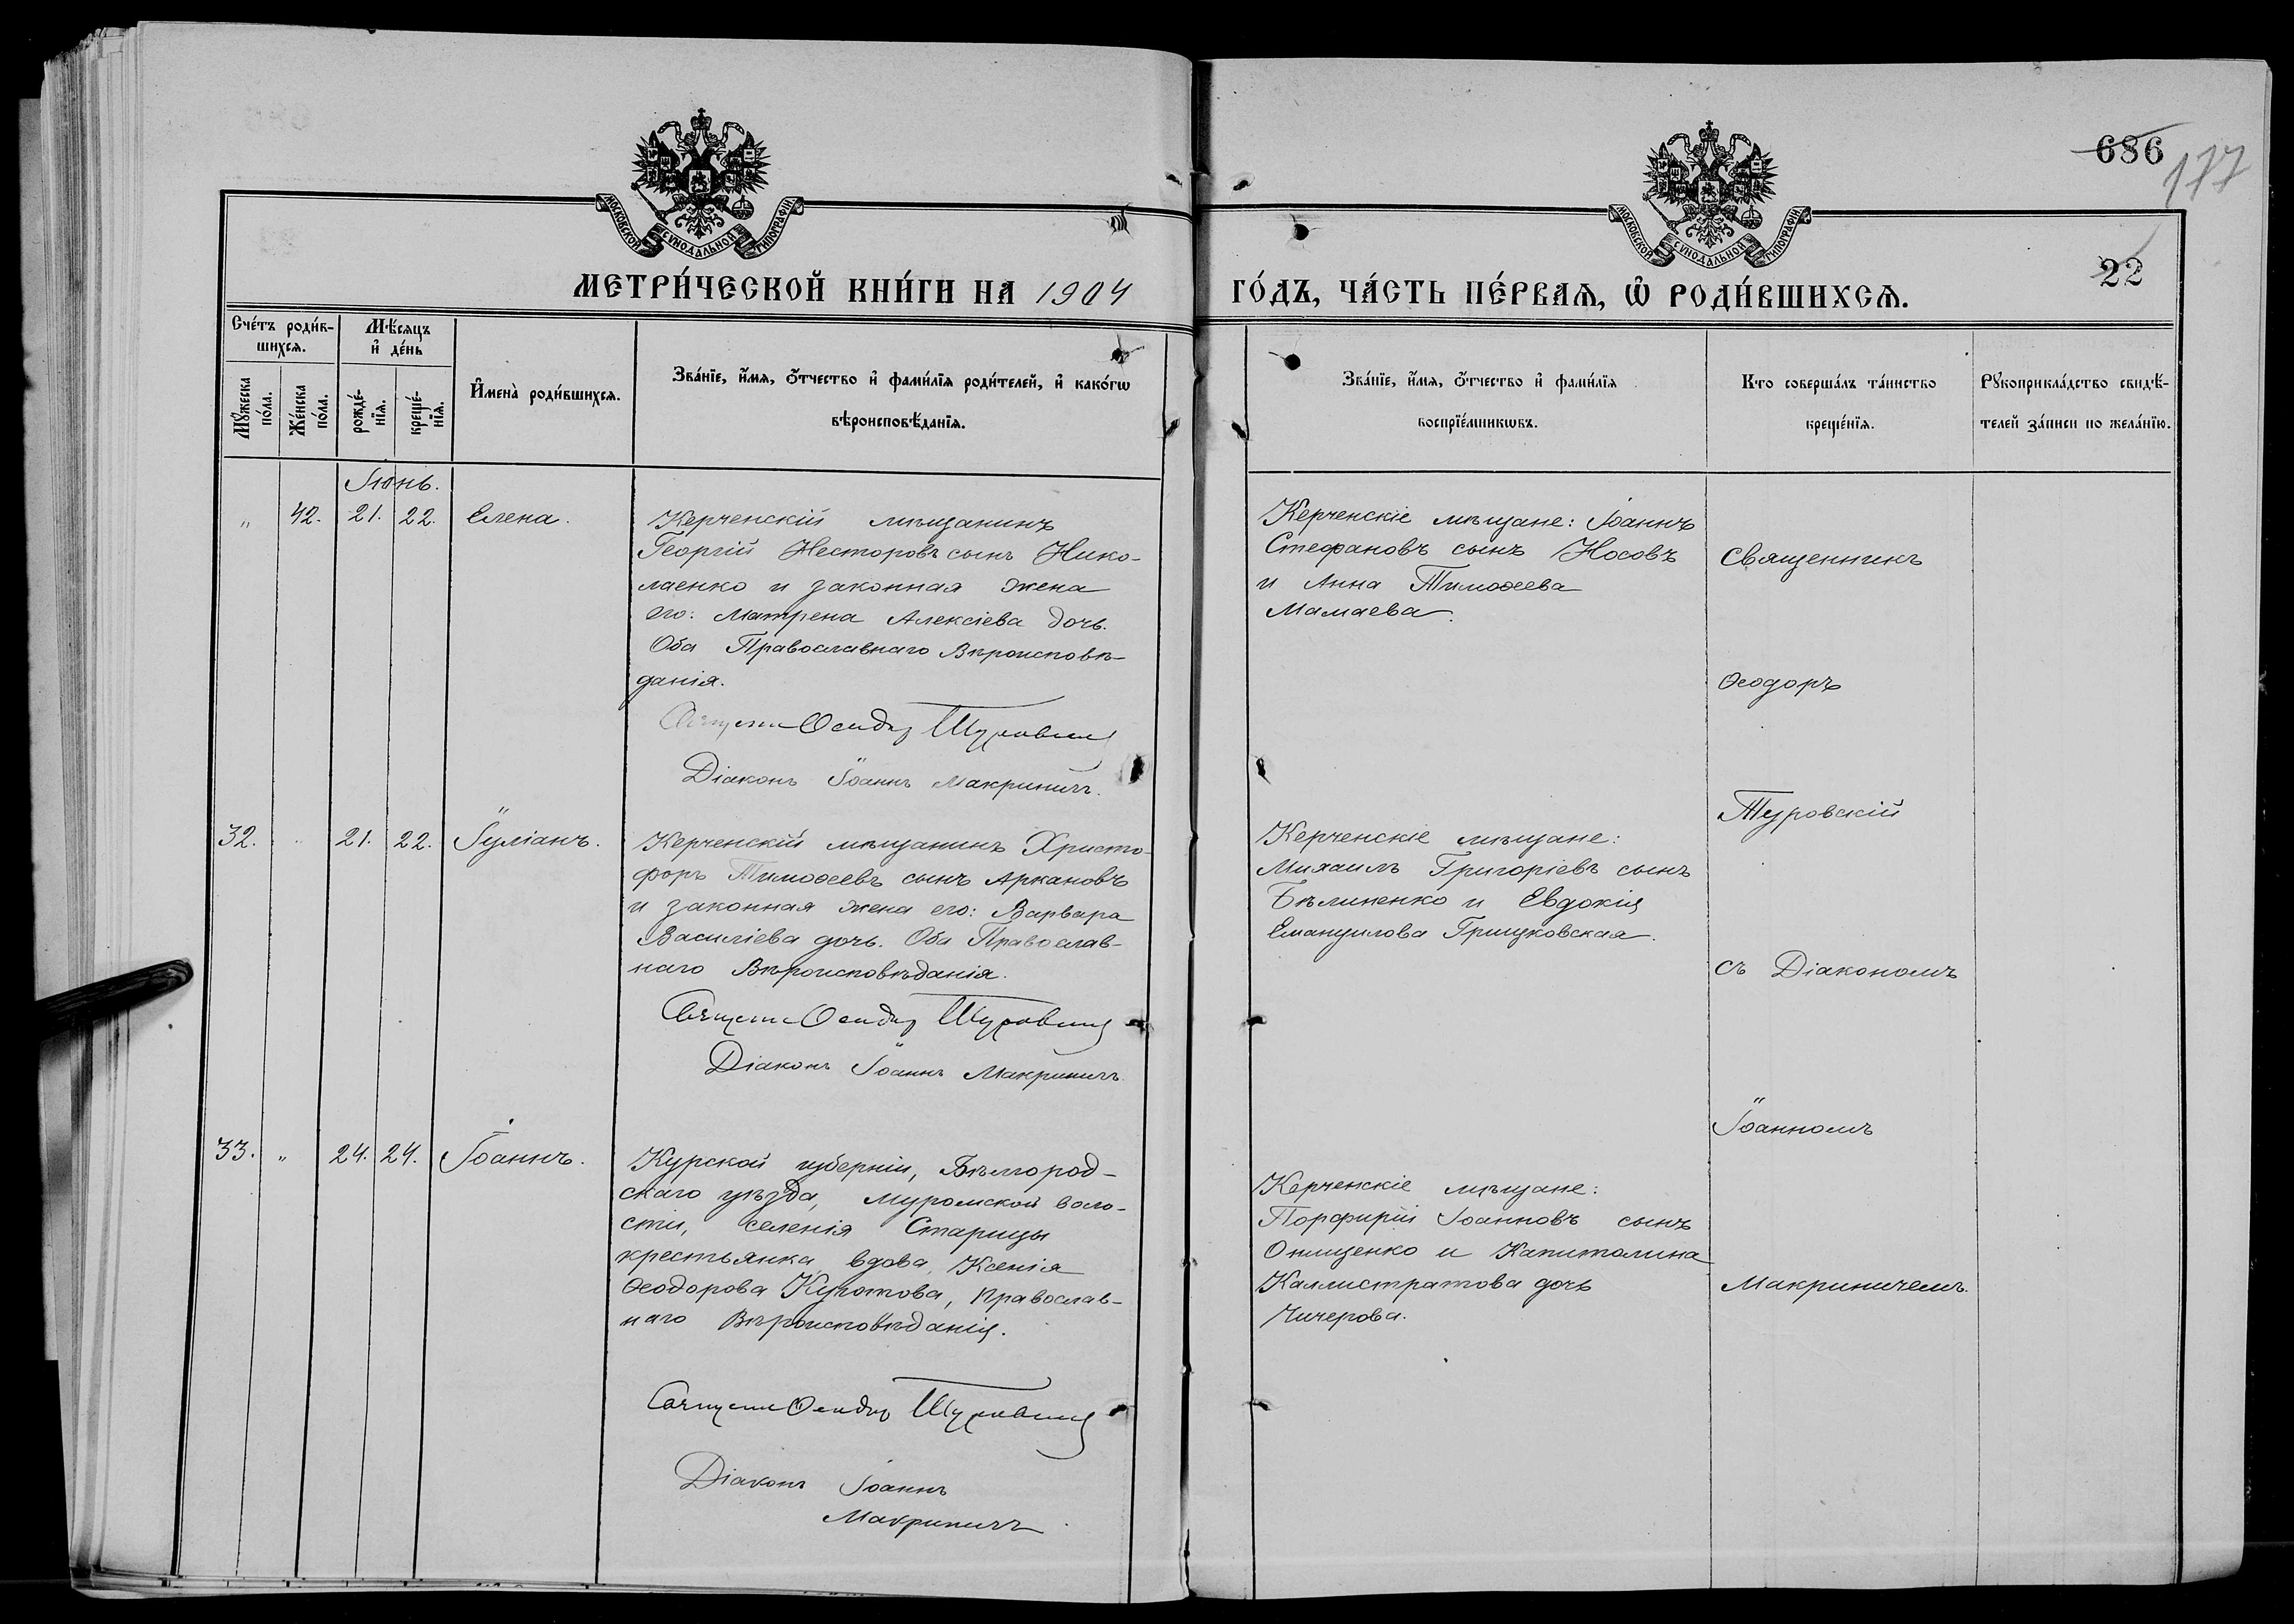 686
177
МОСКОВСКОЙ СѴНОДАЛЬНОЙ ТИПОГРАФІИ
МОСКОВСКОЙ СѴНОДАЛЬНОЙ ТИПОГРАФІИ
22
МЕТРИ́ЧЕСКОЙ КНИ́ГИ НА 1904
ГО́ДЪ, ЧА́СТЬ ПЕ́РВАѦ, Ѡ҆ РОДИ́ВШИХСѦ.
Сче́тъ роди́в-
шихсѧ.
Мꙋжеска по́ла.
Же́нска по́ла.
Мѣ́сяцъ
и҆ де́нь
рожде́-
нїѧ.
креще́-
нїѧ.
И҆мена̀ роди́вшихсѧ.
Зва́нїе, и҆́мѧ, ѻ҆́тчество и҆ фами́лїѧ роди́телей, и҆ како́гѡ
вѣроисповѣ́данїѧ.
Зва́нїе, и҆́мѧ, ѻ҆́тчество и҆ фами́лїѧ
воспрїе́мникѡвъ.
Кто соверша́лъ та́инство
креще́нїѧ.
Рꙋкоприкла́дство свидѣ́-
телей за́писи по жела́нїю.
Іюнь.
" 42. 21. 22. Елена.
Керченскій мѣщанинъ
Георгій Несторовъ сынъ Нико-
лаенко и законная жена
его: Матрена Алексіева дочь.
Оба Православнаго Вѣроисповѣ-
данія.
Священ. Ѳеодоръ Туровскій
Діаконъ Іоаннъ Макриничъ.
Керченскіе мѣщане: Іоаннъ
Стефановъ сынъ Носовъ
и Анна Тимоѳеева
Мамаева.
Священникъ
Ѳеодоръ
Туровскій
съ Діакономъ
Іоанномъ
Макриничемъ.
32. " 21. 22. Іуліанъ.
Керченскій мѣщанинъ Христо-
форъ Тимоѳеевъ сынъ Аркановъ
и законная жена его: Варвара
Василіева дочь. Оба Православ-
наго Вѣроисповѣданія.
Священ. Ѳеодоръ Туровскій
Діаконъ Іоаннъ Макриничъ
Керченскіе мѣщане:
Михаилъ Григоріевъ сынъ
Бѣлименко и Евдокія
Емануилова Грицковская.
33. " 24. 24. Іоаннъ.
Курской губерніи, Бѣлгород-
скаго уѣзда, Муромской воло-
сти, селенія Старицы
крестьянка вдова, Ксенія
Ѳеодорова Православ-
наго Вѣроисповѣданія.
Священ. Ѳеодоръ Туровскій
Діаконъ Іоаннъ
Макриничъ
Керченскіе мѣщане:
Порфирій Іоанновъ сынъ
Онищенко и Капитолина
Каллистратова дочь
Чичерова.